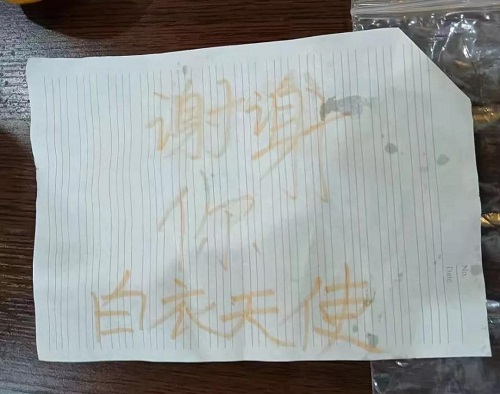 谢谢
你
白衣天使
No.
Date